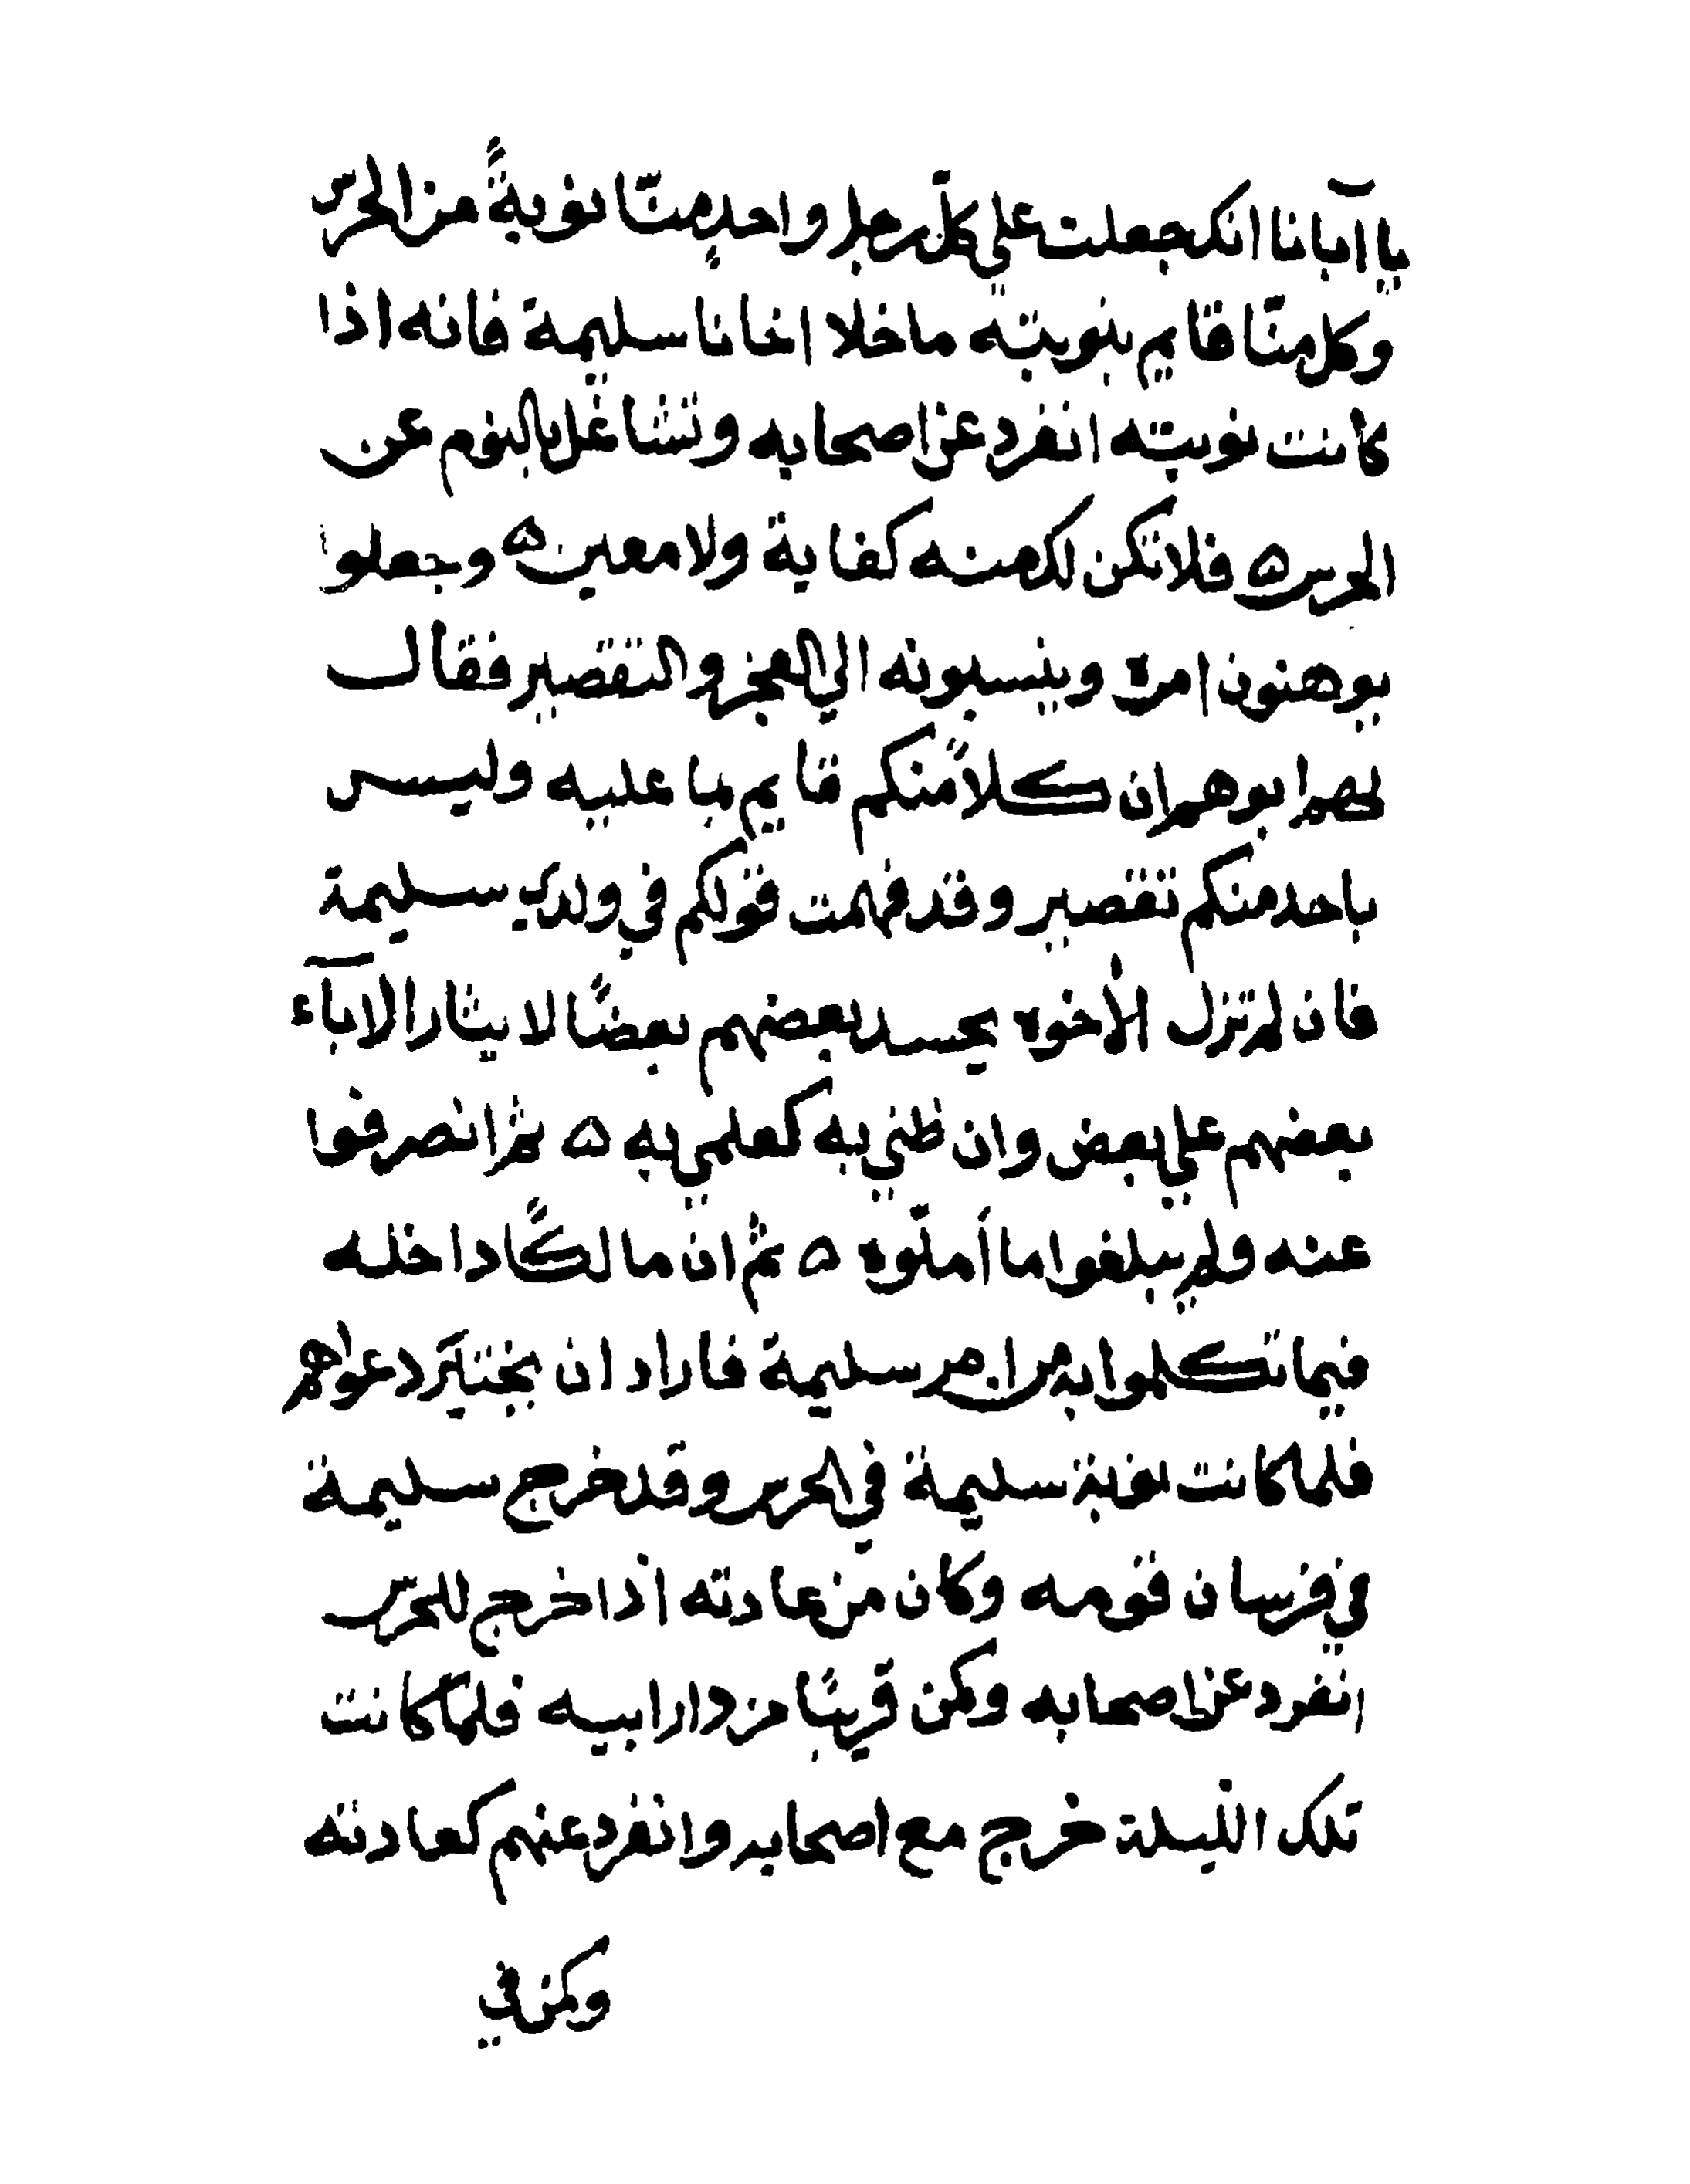 يا آبانا انك جعلت علي كلّ رجل واحدٍ متّا نوبةً من الحرس
وكل منّا قايم بنوبته ما خلا اخانا سليمة فانه اذا
كانت نوبته انفرد عن اصحابه وتشاغل بالنوم عن
الحرس ه فلا تكن لك منه كفاية ولا معين ه وجعلوا
يوهنون امره وينسبونه الي العجز والتقصير فقال
لهم ابوهم ان كلاً منكم قايم بما عليه وليس
باحد منكم تقصير وقد فهمت قولكم في ولدي سليمة
فان لم تزل الأخوه يحسد بعضهم بعضًا لايثار الاباء
بعضهم علي بعض وان ظني به كعلمي به ه ثم انصرفوا
عنه ولم يبلغوا ما أملّوه ه ثم ان مالكًا داخله
فيما تكلموا به من امر سليمة فاراد ان يختبر دعواهم
فلما كانت نوبة سليمة في الحرس وقد خرج سليمة
في فرسان قومه وكان من عادته اذا خرج للحرس
انفرد عن اصحابه وكمن قريبًا من دار ابيه فلمّا كانت
تلك الليلة خرج مع اصحابه وانفرد عنهم كعادته
وكمن في